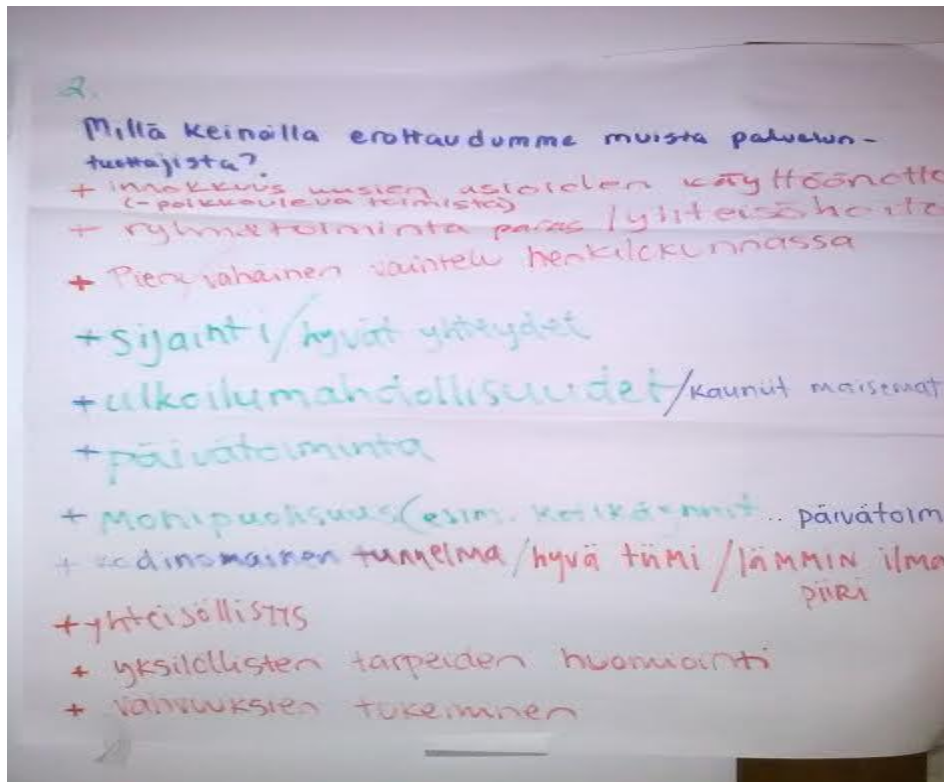 2.
Millä keinoilla erottaudumme muista palvelun-
tuottajista?
+ innokkuus uusien asioiden käyttöönotto
(-poikkouleva toimisto)
+ ryhmätoiminta paras / yhteisöhoito
+ Pieni vähäinen vaihtelu henkilökunnassa
+ Sijainti / hyvät yhteydet
+ ulkoilumahdollisuudet / kauniit maisemat
+ päivätoiminta
+ Monipuolisuus (esim. kotikäynnit .. päivätoim
+ kodinomainen tunnelma / hyvä tiimi / lämmin ilma
piiri
+ yhteisöllisyys
+ yksilöllisten tarpeiden huomiointi
+ vahvuuksien tukeminen